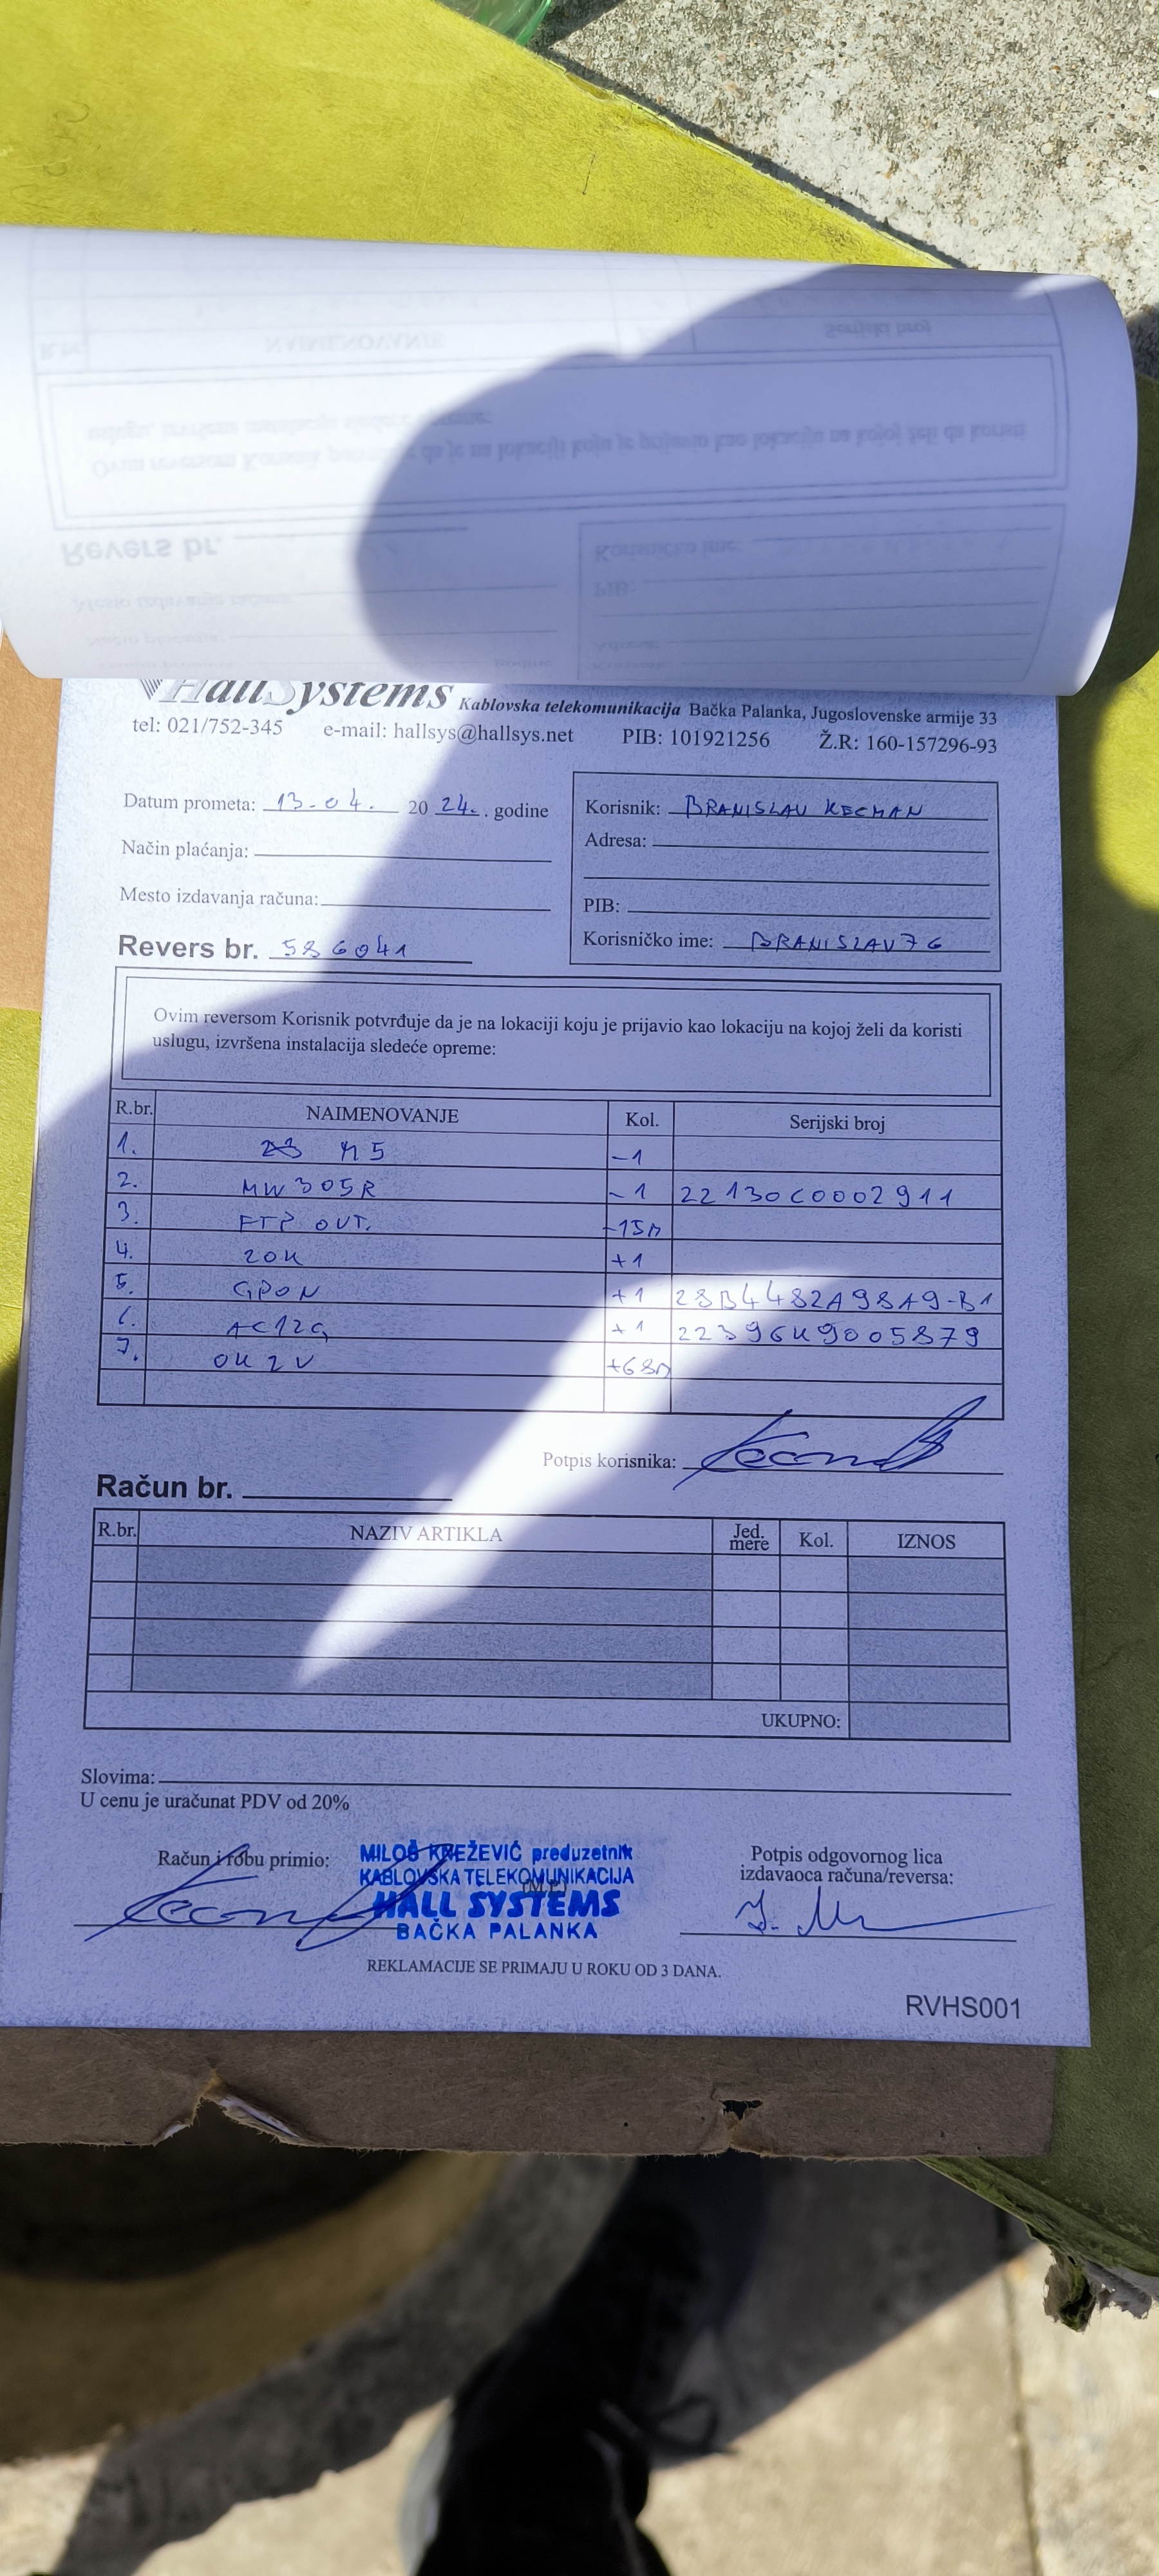 HallSystems Kablovska telekomunikacija Bačka Palanka, Jugoslovenske armije 33
tel: 021/752-345 e-mail: hallsys@hallsys.net PIB: 101921256 Ž.R: 160-157296-93
Datum prometa: 13-04. 2024. godine
Način plaćanja:
Mesto izdavanja računa:
Revers br. 586041
Korisnik: BRANISLAV KECMAN
Adresa:
PIB:
Korisničko ime: BRANISLAV76
Ovim reversom Korisnik potvrđuje da je na lokaciji koju je prijavio kao lokaciju na kojoj želi da koristi
uslugu, izvršena instalacija sledeće opreme:
R.br. NAIMENOVANJE Kol. Serijski broj
1. M5 -1
2. MW305R -1 22130C0002911
3. FTP OUT. -15m
4. ZOK +1
5. GPON +1 28B4482A98A9-B1
6. AC12G +1 22396K9005879
7. OK 2V +68m
Potpis korisnika:
Račun br.
R.br. NAZIV ARTIKLA Jed. mere Kol. IZNOS
UKUPNO:
Slovima:
U cenu je uračunat PDV od 20%
Račun i robu primio:
MILOŠ KNEŽEVIĆ preduzetnik
KABLOVSKA TELEKOMUNIKACIJA
(M.P.)
HALL SYSTEMS
BAČKA PALANKA
Potpis odgovornog lica
izdavaoca računa/reversa:
REKLAMACIJE SE PRIMAJU U ROKU OD 3 DANA.
RVHS001